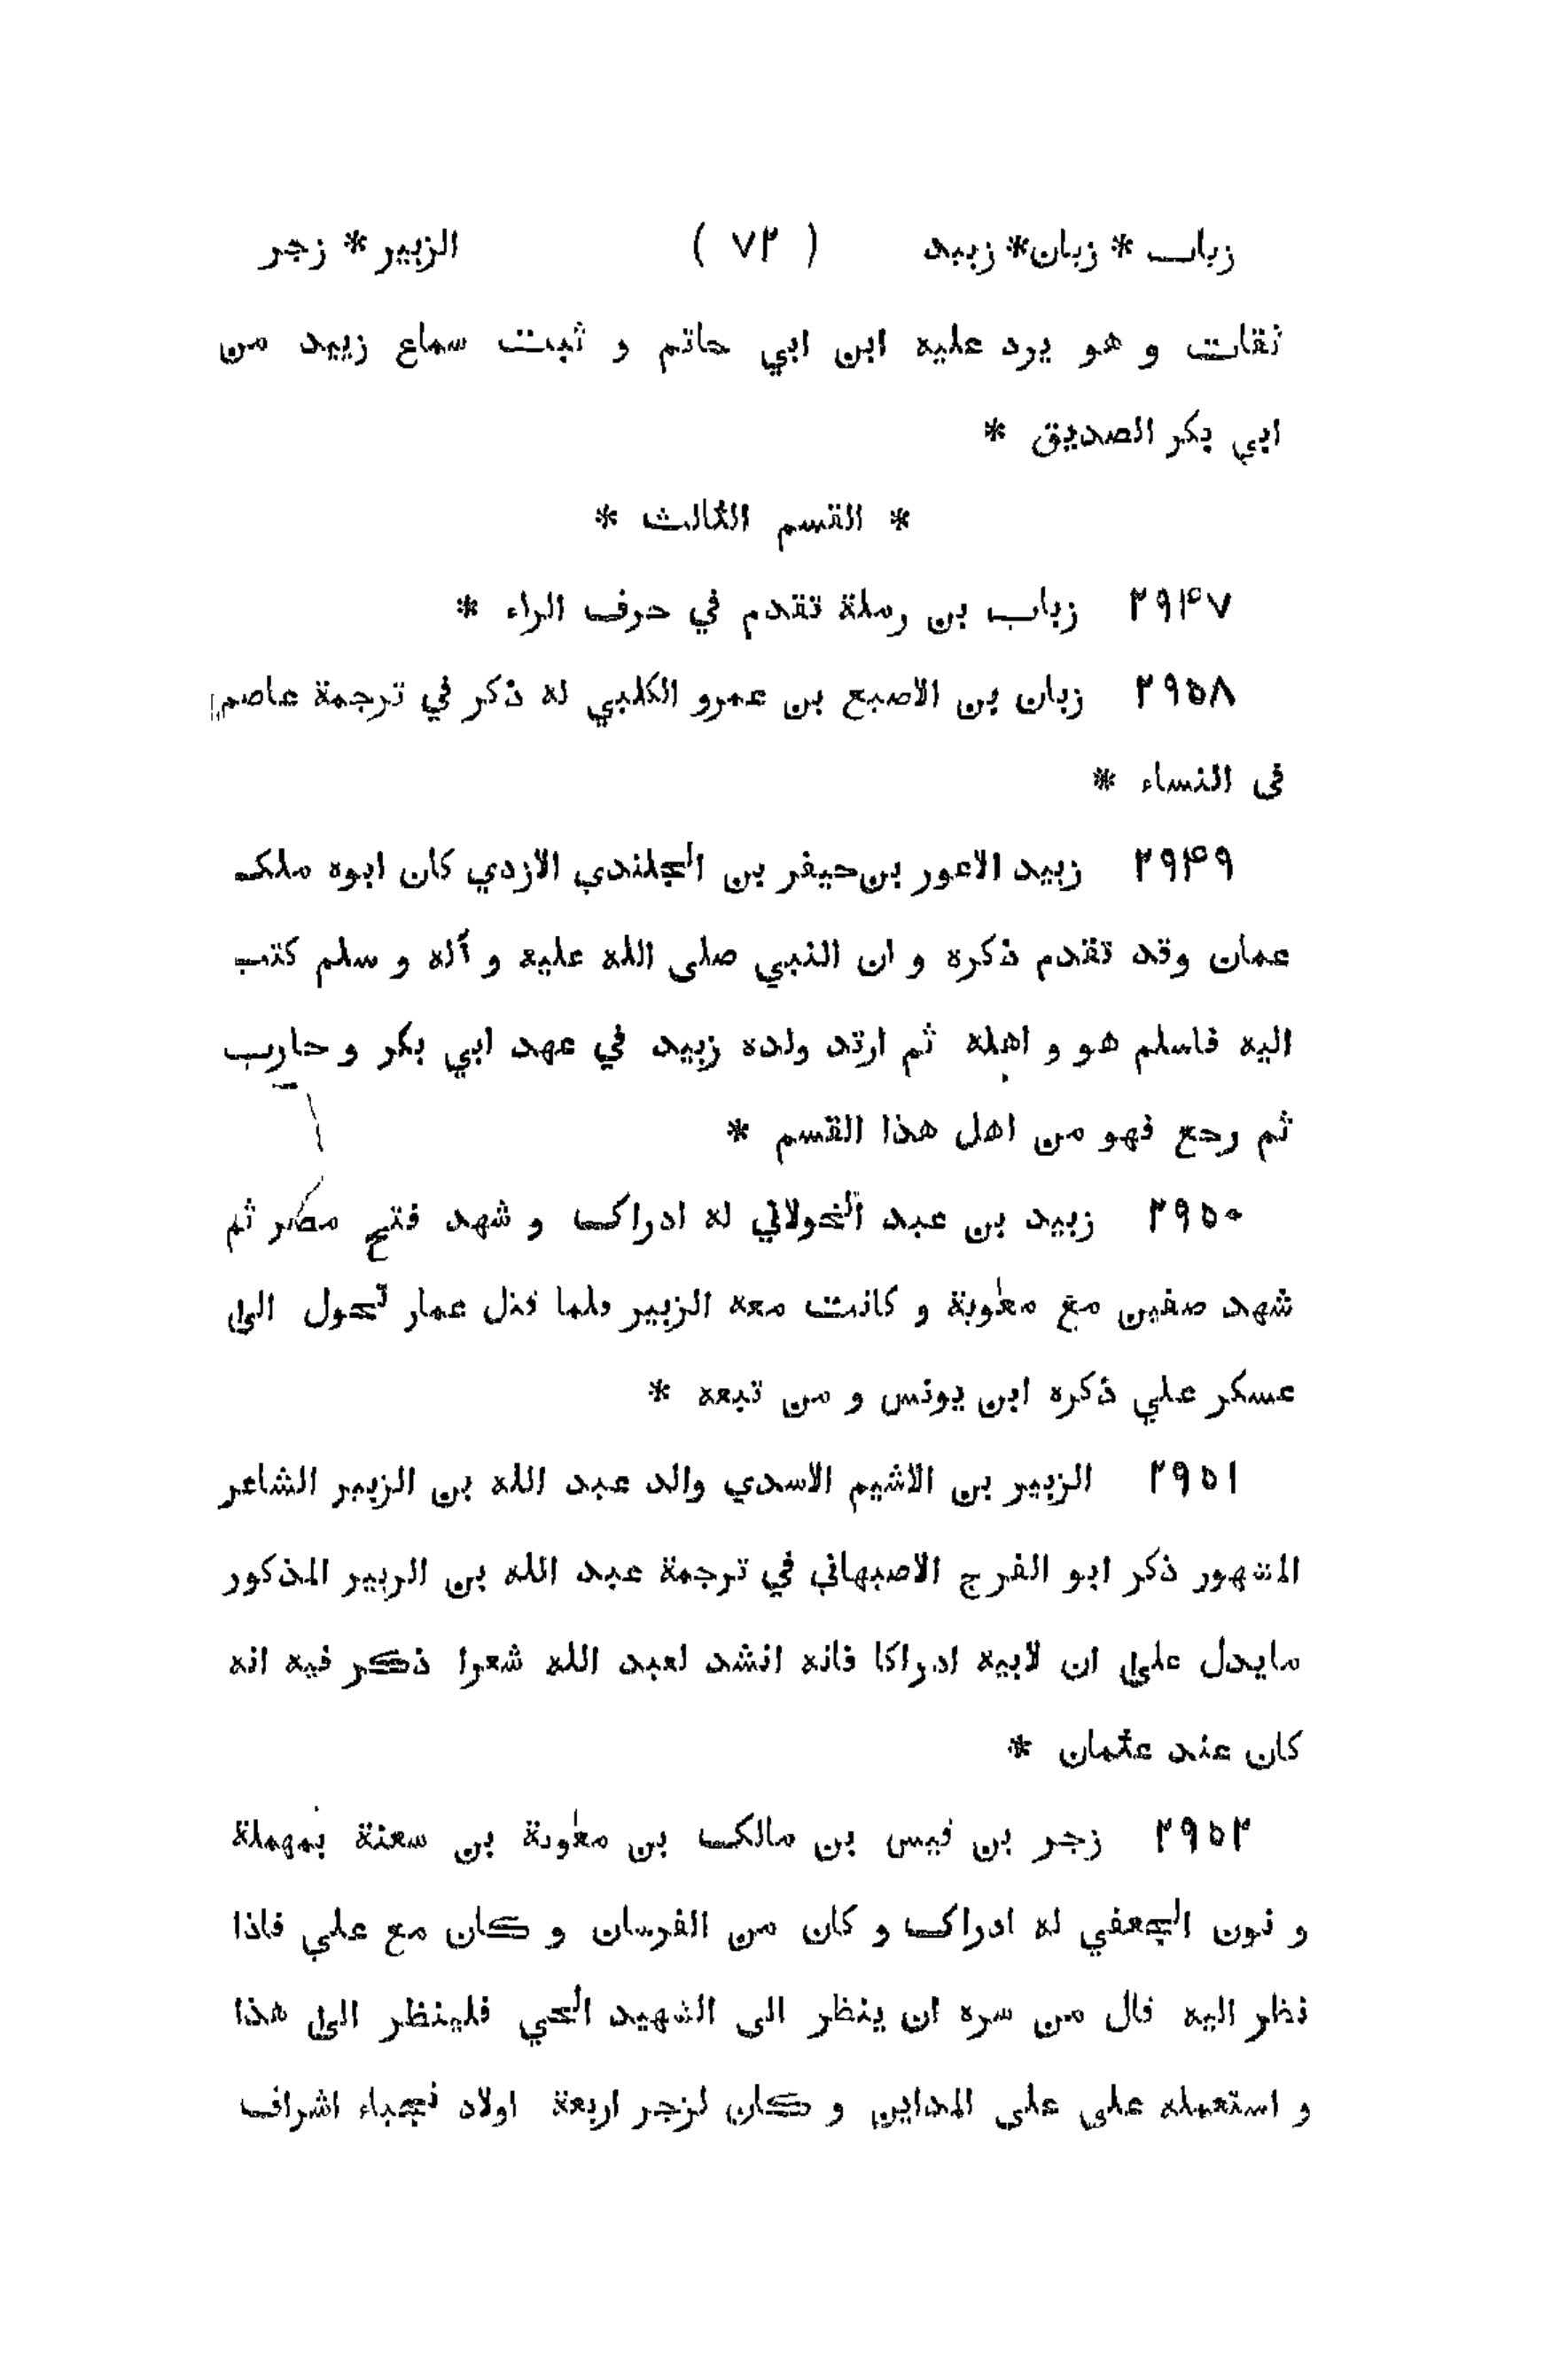 زباب * زبان * زبيد ( ٧٢ ) الزبير * زجر
ثقات و هو يرد عليه ابن ابي حاتم و ثبت سماع زبيد من
ابي بكر الصديق *
* القسم الثالث *
٢٩۴٧ زباب بن رملة تقدم في حرف الراء *
٢٩٥٨ زبان بن الاصبع بن عمرو الكلبي له ذكر في ترجمة عاصم
فى النساء *
٢٩۴٩ زبيد الاعور بن حيفر بن الجلندي الازدي كان ابوه ملك
عمان وقد تقدم ذكره و ان النبي صلى الله عليه و آله و سلم كتب
اليه فاسلم هو و اهله ثم ارتد ولده زبيد في عهد ابي بكر و حارب
ثم رجع فهو من اهل هذا القسم *
٢٩٥٠ زبيد بن عبد الخولاني له ادراك و شهد فتح مصر ثم
شهد صفين مع معٰوية و كانت معه الزبير فلما قتل عمار تحول الى
عسكر علي ذكره ابن يونس و من تبعه *
٢٩٥١ الزبير بن الاشيم الاسدي والد عبد الله بن الزبير الشاعر
المشهور ذكر ابو الفرج الاصبهاني في ترجمة عبد الله بن الزبير المذكور
مايدل على ان لابيه ادراكا فانه انشد لعبد الله شعرا ذكر فيه انه
كان عند عثمان *
٢٩٥٢ زجر بن قيس بن مالك بن معٰوية بن سعنة بمهملة
و نون الجعفي له ادراك و كان من الفرسان و كان مع علي فاذا
نظر اليه قال من سره ان ينظر الى الشهيد الحي فلينظر الى هذا
و استعمله على على المداين و كان لزجر اربعة اولاد نجباء اشراف